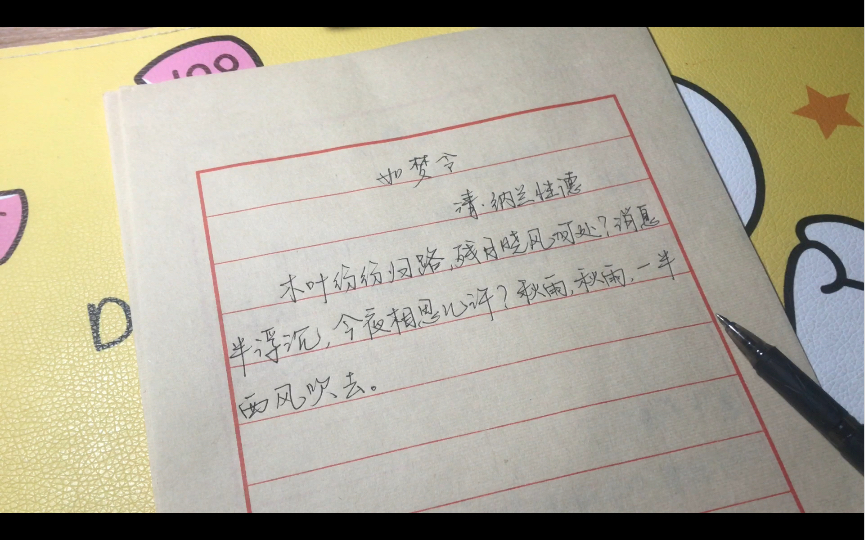 100
如梦令
清·纳兰性德
木叶纷纷归路，残月晓风何处？消息
半浮沉，今夜相思几许？秋雨，秋雨，一半
西风吹去。
D